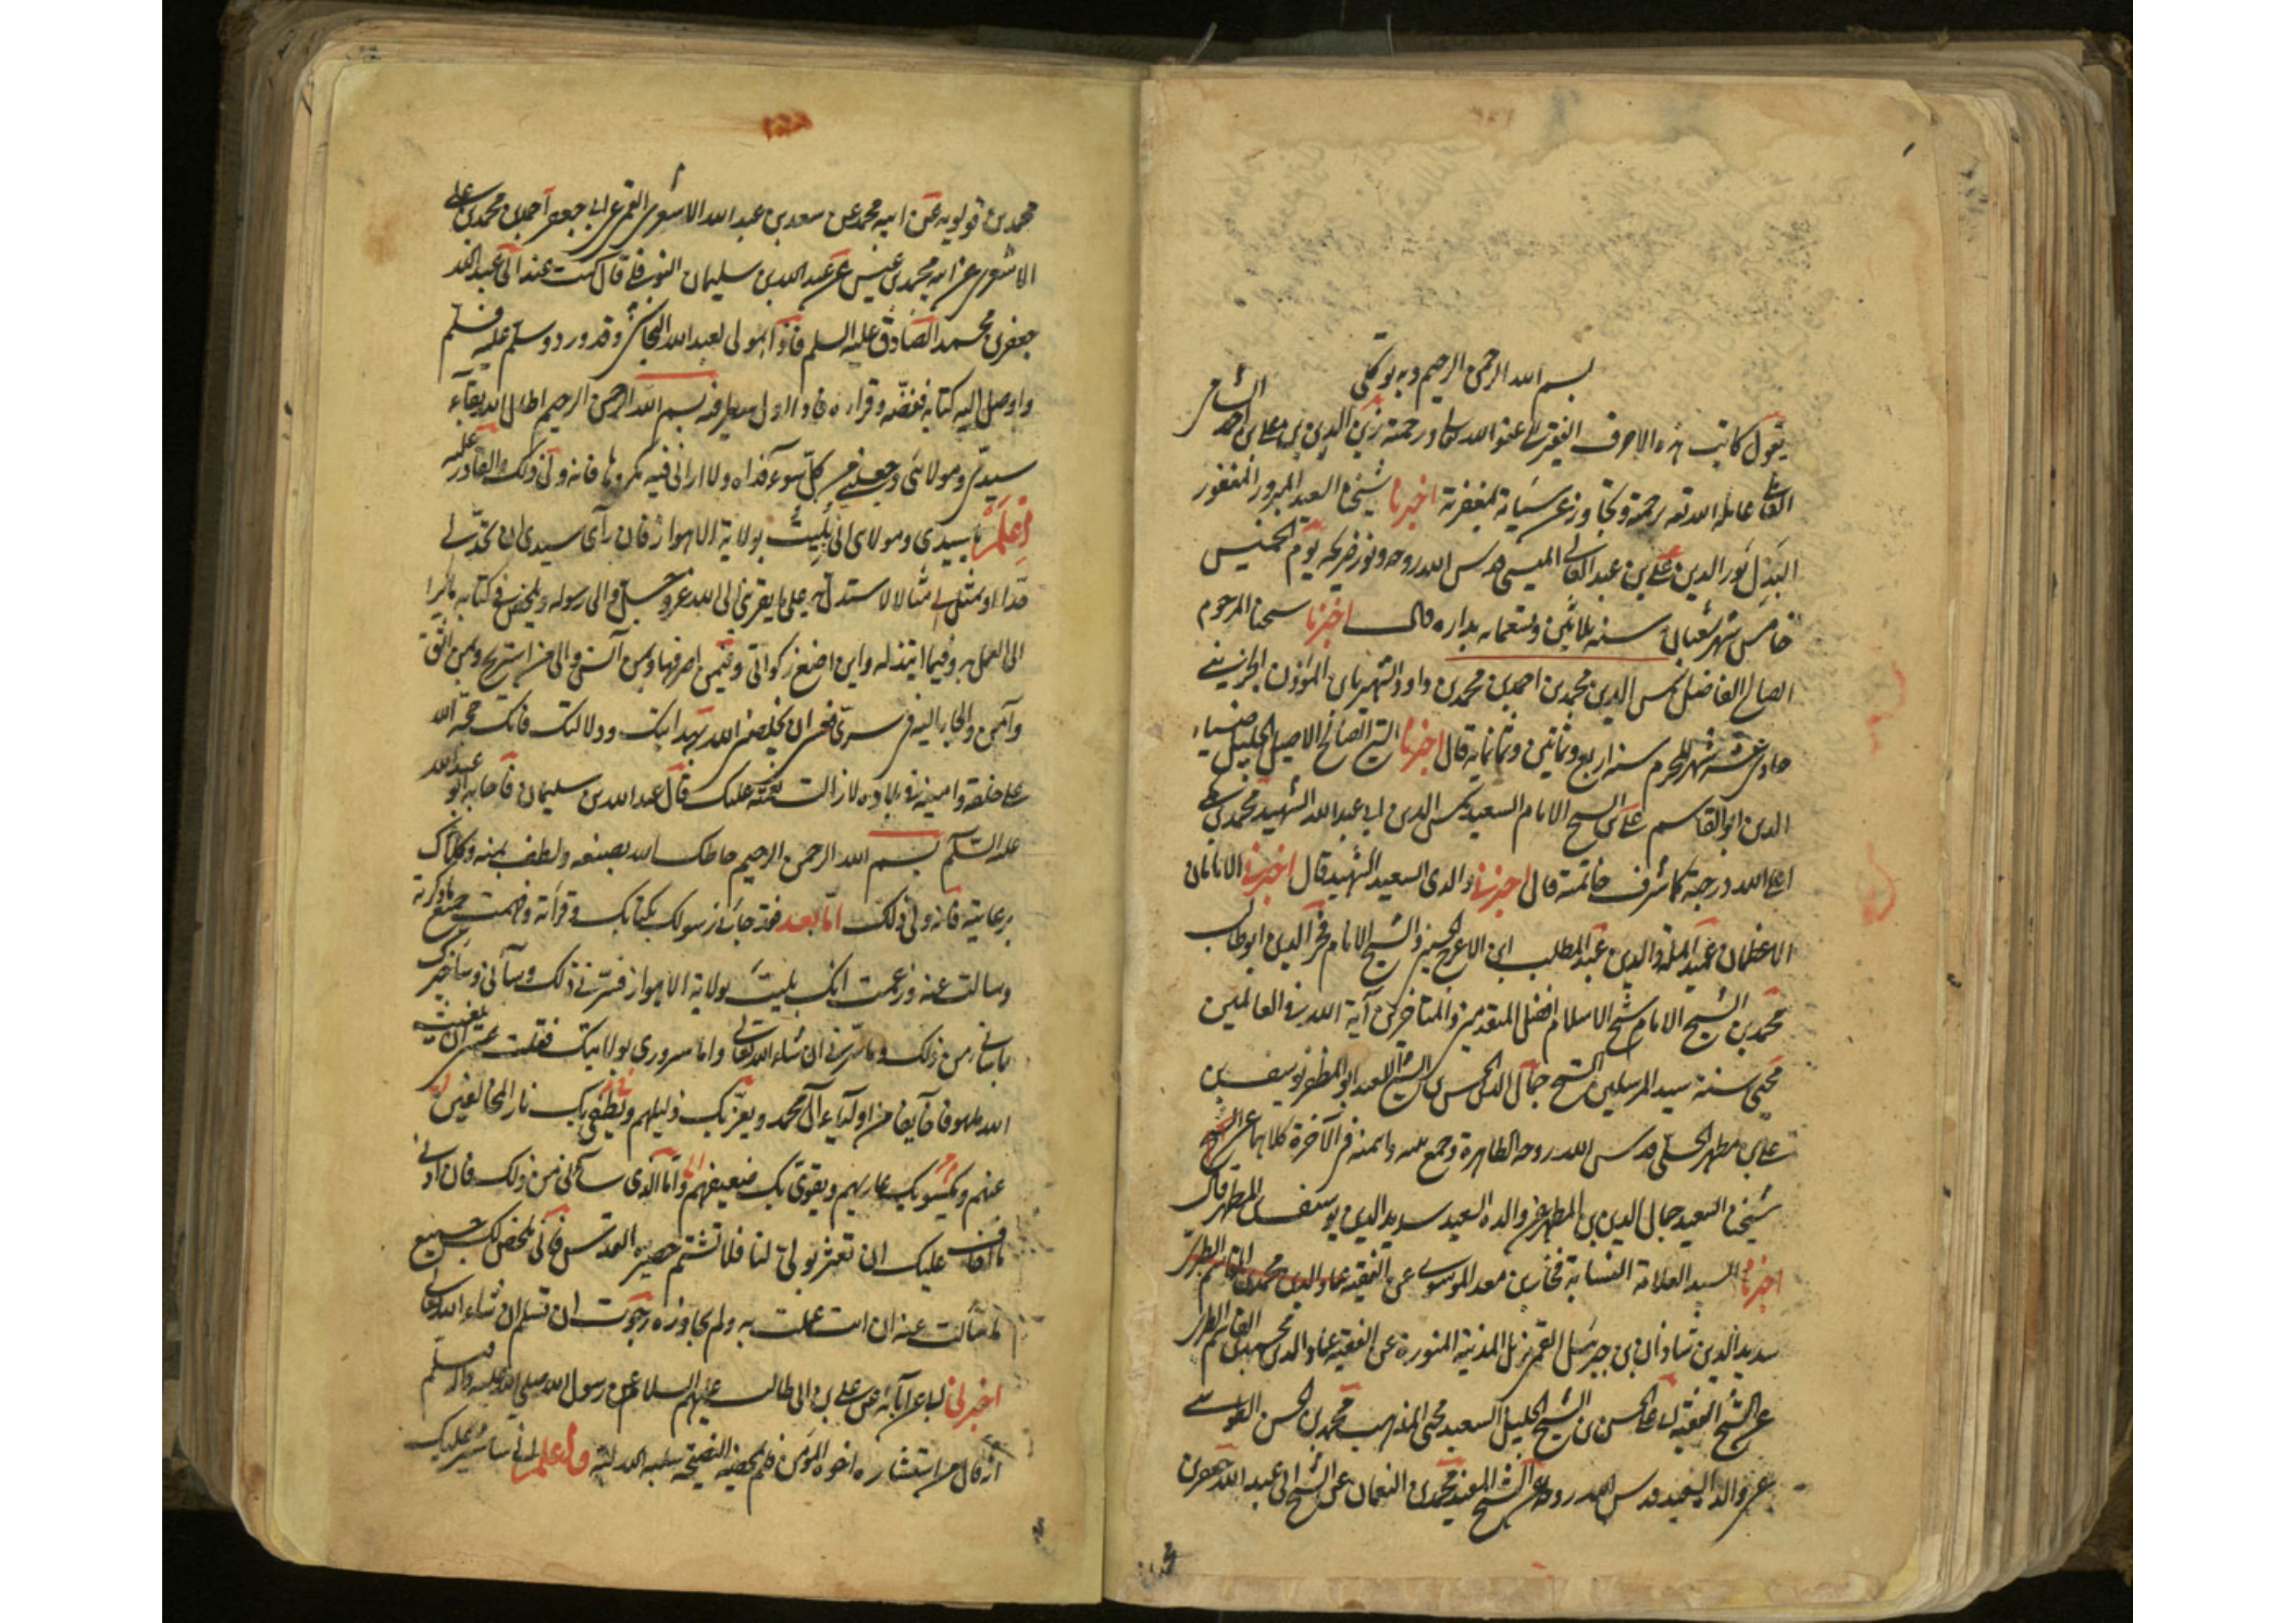 بسم الله الرحمن الرحيم وبه توكلي
يقول كاتب هذه الاحرف الفقير الى عفو الله تعالى ورحمته زين الدين بن على بن احمد الشامي
العاملي عامله الله تعه برحمته وتجاوز عن سيئاته بمغفرته اخبرنا شيخنا السعيد المبرور المغفور
النبيل نور الدين على بن عبد العالي الميسي قدس الله روحه ونور ضريحه يوم الخميس
خامس شهر شعبان سنه ثلاثين وتسعمايه بداره قال اخبرنا شيخنا المرحوم
الصالح الفاضل شمس الدين محمد بن احمد بن محمد بن داود الشهير بابن المؤذن الجزيني
حادي عشر شهر المحرم سنه اربع وثمانين وثمانمايه قال اخبرنا الشيخ الصالح الاصيل الجليل ضياء
الدين ابو القاسم على بن الشيخ الامام السعيد شمس الدين ابى عبد الله الشهيد محمد بن مكي
اعلى الله درجته كما شرف خاتمته قال اخبرنى والدى السعيد الشهيد قال اخبرنى الامامان
الاعظمان عميد الملة والدين عبد المطلب ابن الاعرج الحسينى والشيخ الامام فخر الدين ابو طالب
محمد بن الشيخ الامام شيخ الاسلام افضل المتقدمين والمتاخرين آية الله في العالمين
محيى سنة سيد المرسلين الشيخ جمال الدين الحسن بن الشيخ السعيد ابو المظفر يوسف بن
على بن مطهر الحلى قدس الله روحه الطاهرة وجمع بينه وبين ائمته فى الآخرة كلاهما عن الشيخ
شيخنا السعيد جمال الدين بن المطهر عن والده السعيد سديد الدين يوسف المطهر قال
اخبرنا السيد العلامة النسابة فخار بن معد الموسوي عن الفقيه عماد الدين محمد بن القاسم الطبرى
سديد الدين شاذان بن جبرئيل القمى نزيل المدينة المنورة عن الفقيه عماد الدين محمد بن القاسم الطبرى
عن الشيخ الفقيه ابى على الحسن بن الشيخ الجليل السعيد محيى المذهب محمد بن الحسن الطوسي
عن والده السعيد قدس الله روحه عن الشيخ المفيد محمد بن النعمان عن الشيخ ابى عبد الله جعفر بن
محمد بن قولويه عن ابيه محمد عن سعد بن عبد الله الاشعرى القمى عن ابى جعفر احمد بن محمد بن على
الاشعرى عن ابيه محمد بن عيسى عن عبد الله بن سليمان النوفلى قال كنت عند ابى عبد الله
جعفر بن محمد الصادق عليه السلم فاذا بمولى لعبد الله النجاشى وقد ورد وسلم عليه فسلم
واوصل اليه كتابه ففضّه وقراه فاذا اول سطر فيه بسم الله الرحمن الرحيم اطال الله بقآء
سيدى ومولائى وجعلنى من كل سوء فداه ولا ارانى فيه مكروها فانه ولى ذلك والقادر عليه
اعلم يا سيدى ومولاى انى بُليتُ بولاية الاهواز فان رآى سيدى ان يحدّ لى
حدّا او يمثل لى مثالا لاستدل به على ما يقربنى الى الله عز وجل والى رسوله ويلخص فى كتابه ما يرا
الى العمل به وفيما ابتذله واين اضع زكواتى وفيمن اصرفها وبمن آنس والى من استريح وبمن اثق
وآمن والجا اليه فى سرى فعسى ان يخلصنى الله بهدايتك ودلالتك فانك حجة الله
على خلقه وامينه فى بلاده لا زالت نعمته عليك قال عبد الله بن سليمان فاجابه ابو عبد الله
عليه السّلم بسم الله الرحمن الرحيم حاطك الله بصنعه ولطف بمنه وكلاك
برعايته فانه ولى ذلك امّا بعد فقد جآءنى رسولك بكتابك وقرأته وفهمت جميع ما ذكرته
وسالت عنه وزعمت انك بليت بولاية الاهواز فسرنى ذلك وسآءنى وساخبرك
بما سآءنى من ذلك وما سرّنى ان شاء الله تعالى واما سرورى بولايتك فقلت عسى ان يغيث
الله ملهوفا خآيفا من اوليآء آل محمد ويعزّ بك ذليلهم ويطفى بك نار المخالفين
عنهم ويكسو بك عاريهم ويقوى بك ضعيفهم وامّا الذى سآءنى من ذلك فان ادنى
ما اخاف عليك ان تعثر بولىّ لنا فلا تشتم حضيرة القدس فانى ملخص لك جميع
ما سألت عنه ان انت عملت به ولم تجاوزه رجوت ان تسلم ان شاء الله تعالى
اخبرنى ابى عن آبائه عن على بن ابى طالب عليهم السلام عن رسول الله صلى الله عليه واله وسلم
انه قال من استشاره اخوه المؤمن فلم يمحضه النصيحة سلبه الله لبّه واعلم انى ساشير عليك